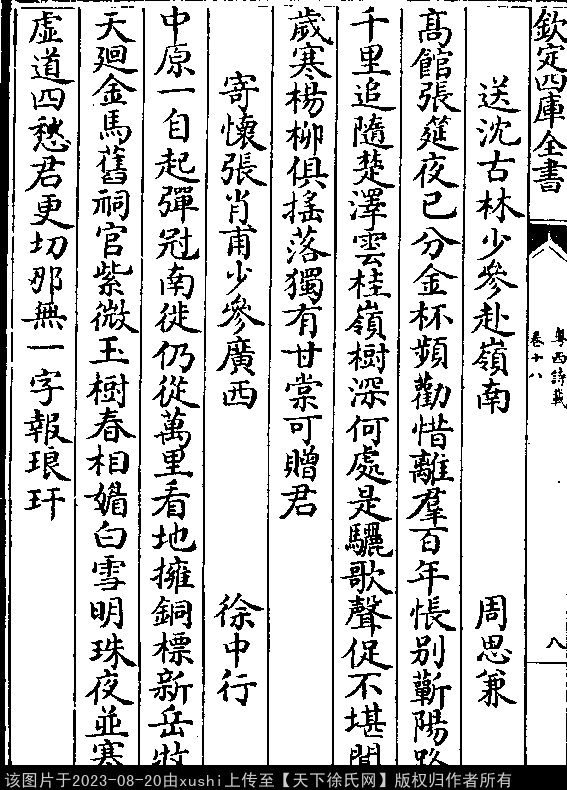 欽定四庫全書
粤西詩載
卷十八
八
送沈古林少參赴嶺南
周思兼
高館張筵夜已分金杯頻勸惜離羣百年悵别蘄陽路
千里追隨楚澤雲桂嶺樹深何處是驪歌聲促不堪聞
歲寒楊柳俱摇落獨有甘棠可贈君
寄懷張肖甫少參廣西
徐中行
中原一自起彈冠南徙仍從萬里看地擁銅標新岳牧
天廻金馬舊祠官紫微玉樹春相媚白雪明珠夜並寒
虚道四愁君更切那無一字報琅玕
该图片于2023-08-20由xushi上传至【天下徐氏网】版权归作者所有